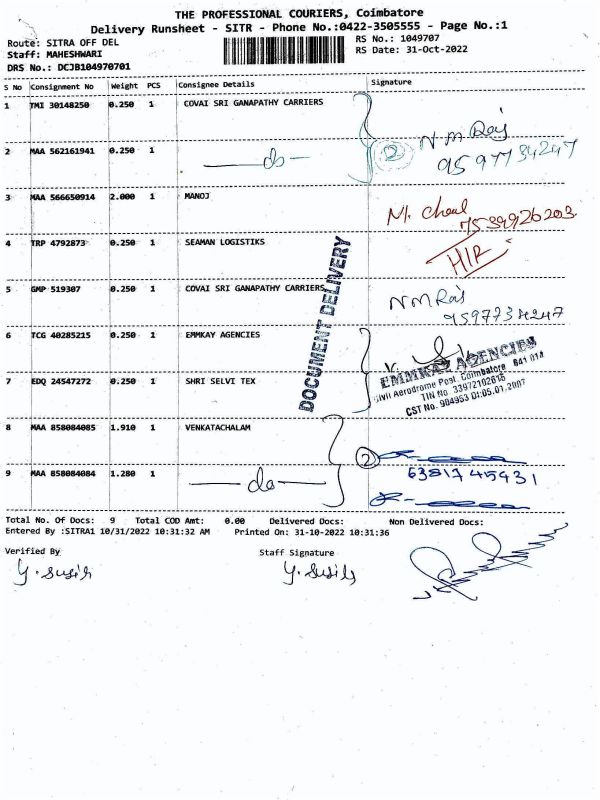 THE PROFESSIONAL COURIERS, Coimbatore
Delivery Runsheet - SITR - Phone No.:0422-3505555 - Page No.:1
Route: SITRA OFF DEL
RS No.: 1049707
Staff: MAHESHWARI
RS Date: 31-Oct-2022
DRS No.: DCJB104970701
S No Consignment No Weight PCS Consignee Details Signature
1 TMI 30148250 0.250 1 COVAI SRI GANAPATHY CARRIERS
2 MAA 562161941 0.250 1 do 2 N M Raj
9597734247
3 MAA 566650914 2.000 1 MANOJ
7539926203
4 TRP 4792873 0.250 1 SEAMAN LOGISTIKS
5 GMP 519307 0.250 1 COVAI SRI GANAPATHY CARRIERS N M Raj
9597734247
DOCUMENT DELIVERY
6 TCG 40285215 0.250 1 EMMKAY AGENCIES
EMMKAY AGENCIES
Civil Aerodrome Post, Coimbatore 641 014
TIN No 33972102615
CST No. 904953 Dt:05.01.2007
7 EDQ 24547272 0.250 1 SHRI SELVI TEX
8 MAA 858084085 1.910 1 VENKATACHALAM 2
9 MAA 858084084 1.280 1 do 6381745931
Total No. Of Docs: 9 Total COD Amt: 0.00 Delivered Docs: Non Delivered Docs:
Entered By :SITRA1 10/31/2022 10:31:32 AM Printed On: 31-10-2022 10:31:36
Verified By Staff Signature